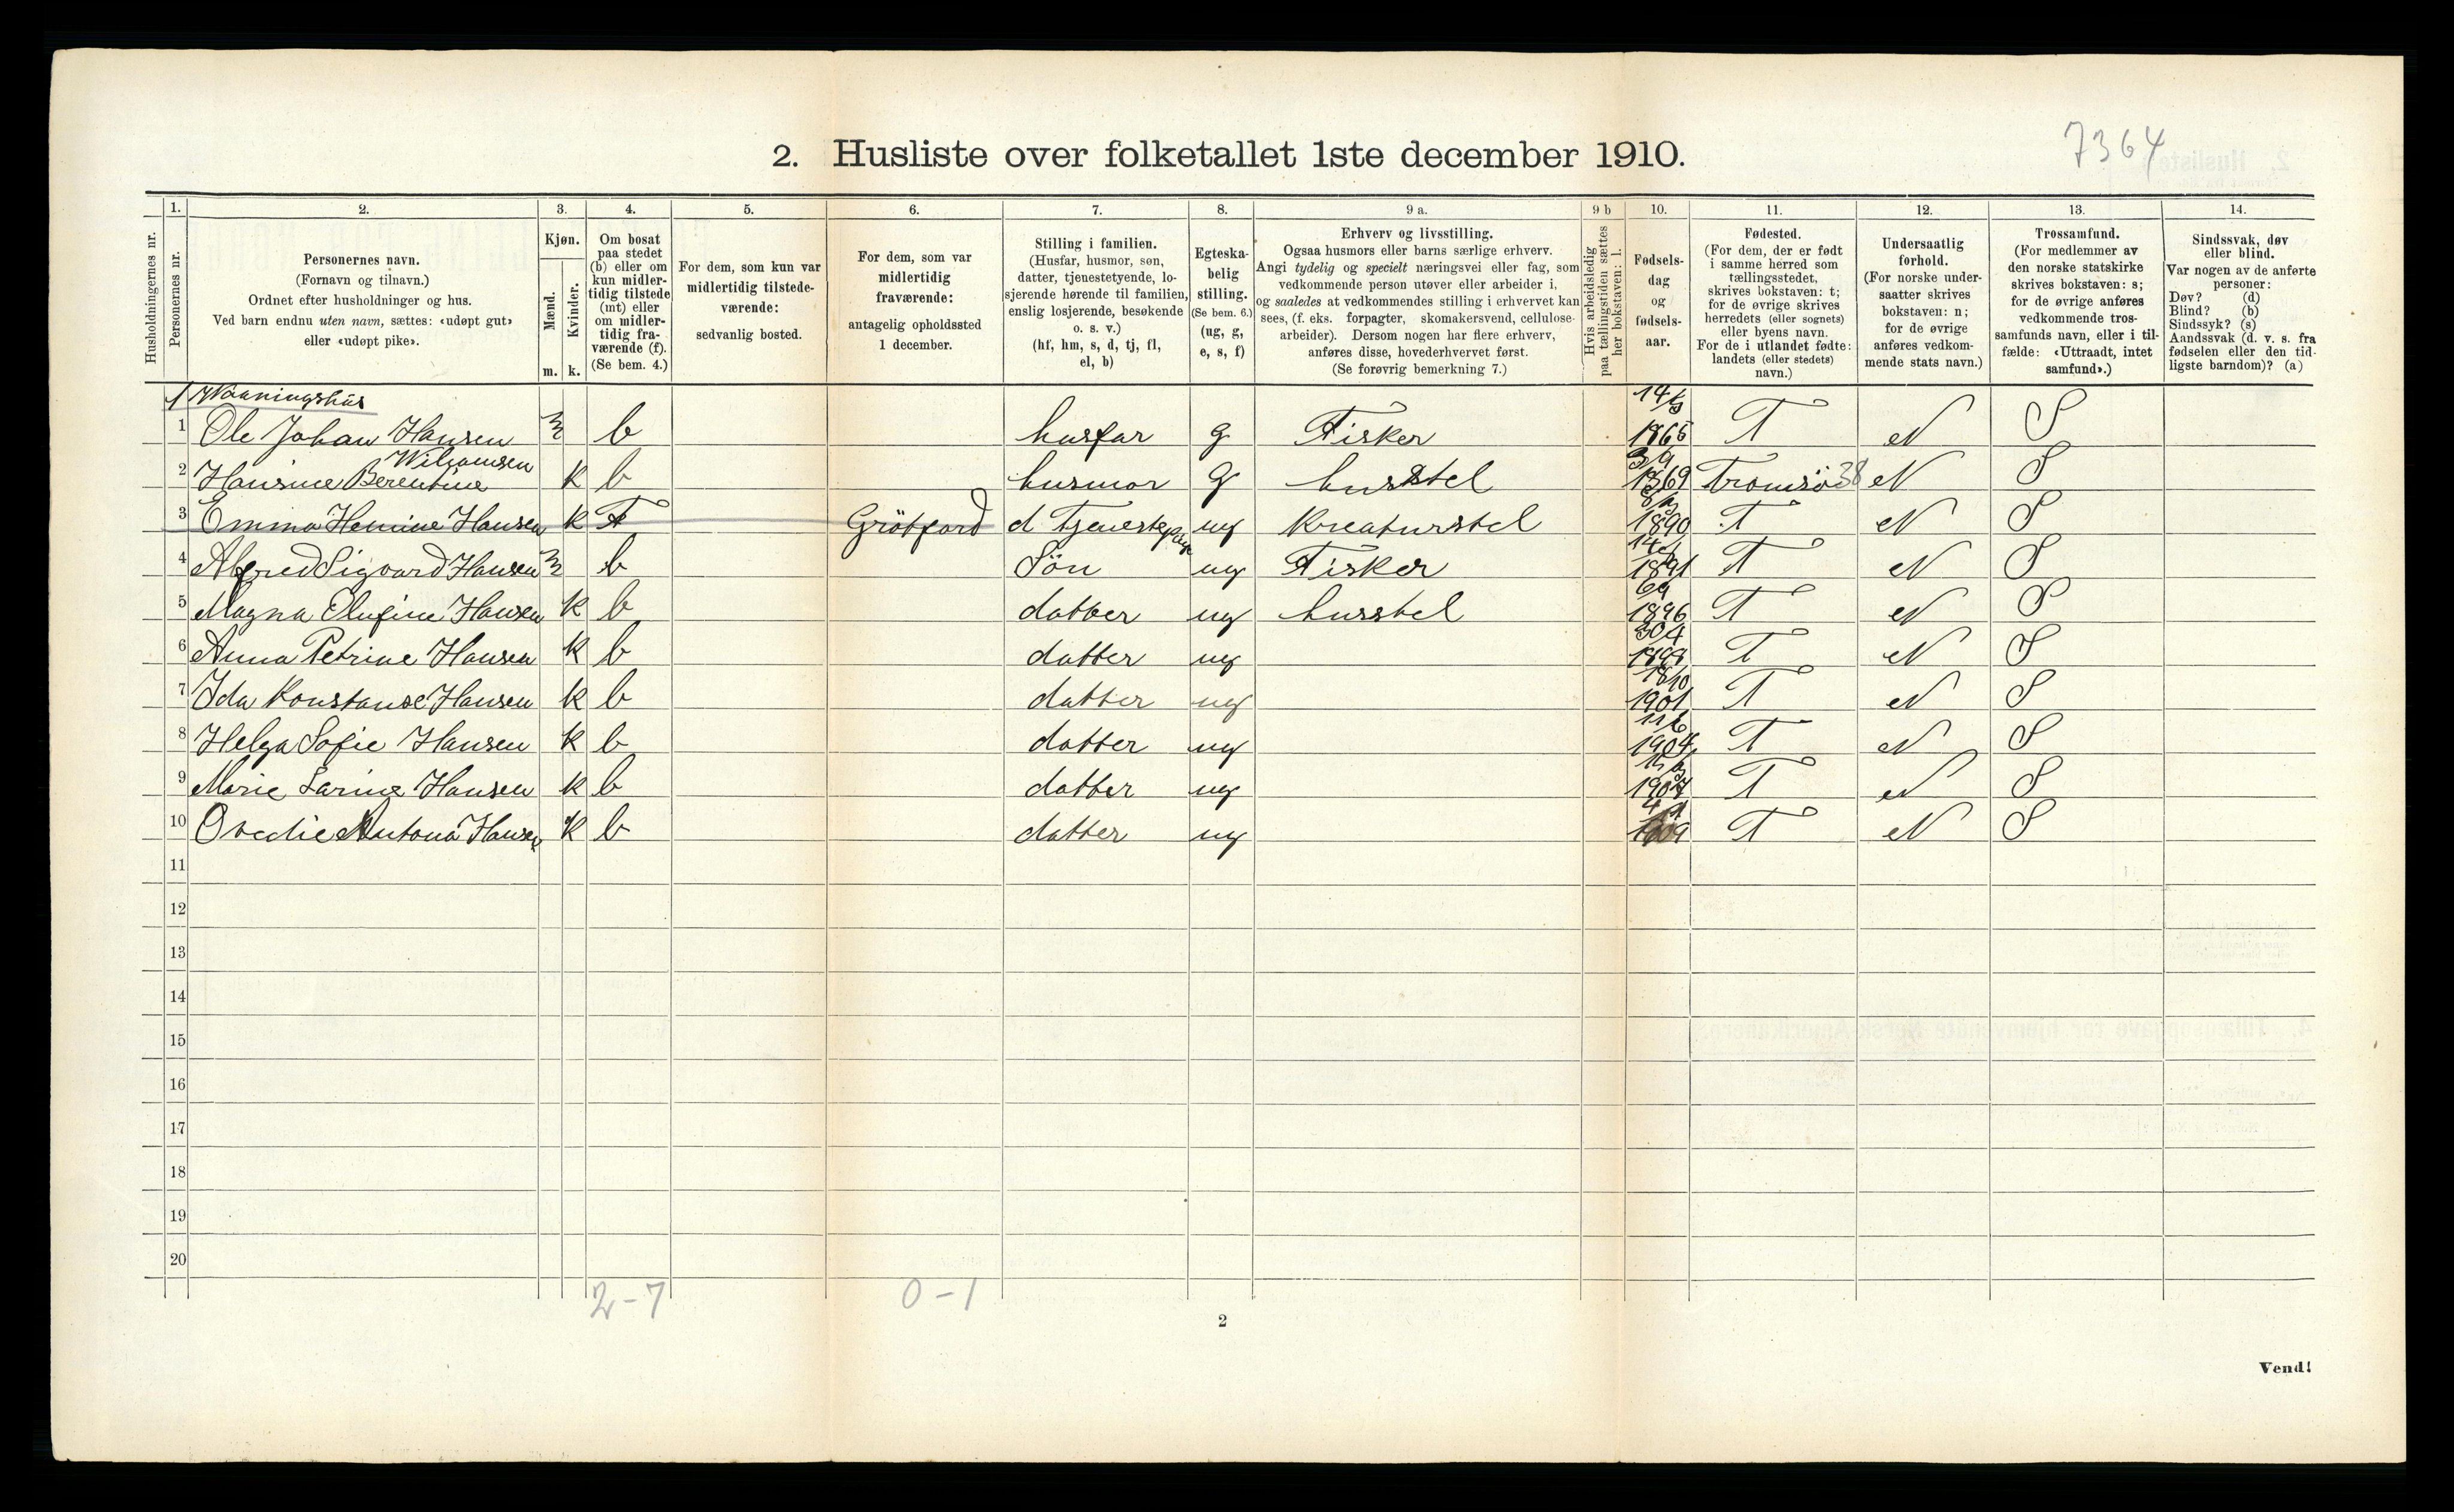 7364
2. Husliste over folketallet 1ste december 1910.
Husholdningernes nr.
1. Personernes nr.
2. Personernes navn.
(Fornavn og tilnavn.)
Ordnet efter husholdninger og hus.
Ved barn endnu uten navn, sættes: «udøpt gut»
eller «udøpt pike».
3. Kjøn.
Mænd. Kvinder.
m. k.
4. Om bosat
paa stedet
(b) eller om
kun midler-
tidig tilstede
(mt) eller
om midler-
tidig fra-
værende (f).
(Se bem. 4.)
5. For dem, som kun var
midlertidig tilstede-
værende:
sedvanlig bosted.
6. For dem, som var
midlertidig
fraværende:
antagelig opholdssted
1 december.
7. Stilling i familien.
(Husfar, husmor, søn,
datter, tjenestetyende, lo-
sjerende hørende til familien,
enslig losjerende, besøkende
o. s. v.)
(hf, hm, s, d, tj, fl,
el, b)
8. Egteska-
belig
stilling.
(Se bem. 6.)
(ug, g,
e, s, f)
9 a. Erhverv og livsstilling.
Ogsaa husmors eller barns særlige erhverv.
Angi tydelig og specielt næringsvei eller fag, som
vedkommende person utøver eller arbeider i,
og saaledes at vedkommendes stilling i erhvervet kan
sees, (f. eks. forpagter, skomakersvend, cellulose-
arbeider). Dersom nogen har flere erhverv,
anføres disse, hovederhvervet først.
(Se forøvrig bemerkning 7.)
9 b Hvis arbeidsledig
paa tællingstiden sættes
her bokstaven: l.
10. Fødsels-
dag
og
fødsels-
aar.
11. Fødested.
(For dem, der er født
i samme herred som
tællingsstedet,
skrives bokstaven: t;
for de øvrige skrives
herredets (eller sognets)
eller byens navn.
For de i utlandet fødte:
landets (eller stedets)
navn.)
12. Undersaatlig
forhold.
(For norske under-
saatter skrives
bokstaven: n;
for de øvrige
anføres vedkom-
mende stats navn.)
13. Trossamfund.
(For medlemmer av
den norske statskirke
skrives bokstaven: s;
for de øvrige anføres
vedkommende tros-
samfunds navn, eller i til-
fælde: «Uttraadt, intet
samfund».)
14. Sindssvak, døv
eller blind.
Var nogen av de anførte
personer:
Døv? (d)
Blind? (b)
Sindssyk? (s)
Aandssvak (d. v. s. fra
fødselen eller den tid-
ligste barndom)? (a)
1 Vaaningshus
1 Ole Johan Hansen m b husfar g Fisker 1865 T N S
Wilsomsen
2 Hansine Berentine k b husmor g husstel 3/9 1869 Tromsö 38 N S
3 Emma Hemine Hansen k F Grötfjord d Tjenestepige ug Kreaturstel 1890 T N S
4 Alfred Sigvard Hansen m b Sön ug Fisker 1891 T N S
5 Magna Olufine Hansen k b datter ug husstel 6/9 1896 T N S
6 Anna Petrine Hansen k b datter ug 30/4 T N S
7 Ida Konstanse Hansen k b datter ug 18/10 1901 T N S
8 Helga Sofie Hansen k b datter ug 11/6 1904 T N S
9 Marie Larine Hansen k b datter ug 1907 T N S
10 Ovedie Antona Hansen k b datter ug 1909 T N S
11
12
13
14
15
16
17
18
19
20
2-7 0-1
2
Vend!